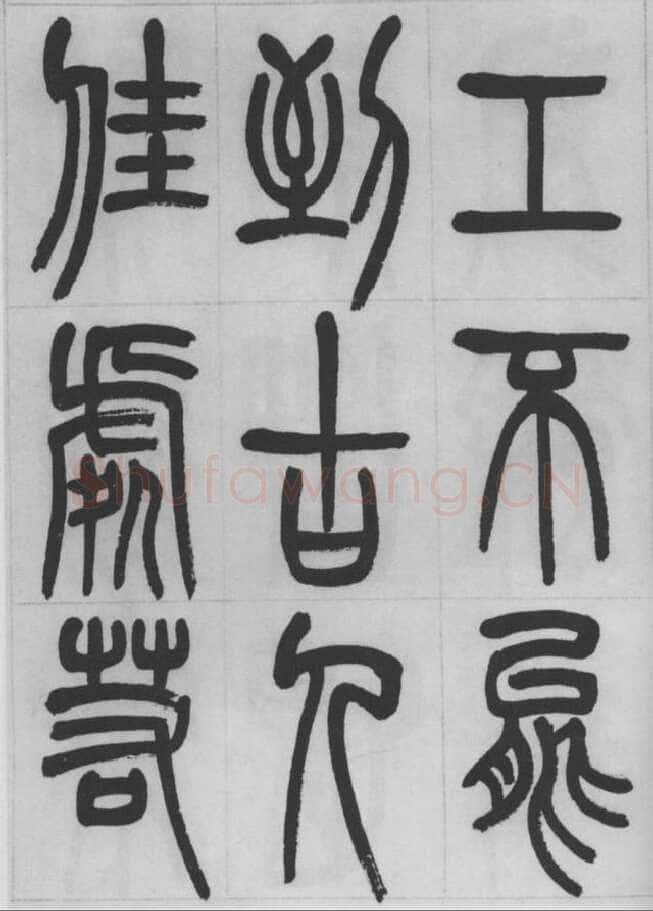 工不
到古人
佳處若
Shufawang.CN